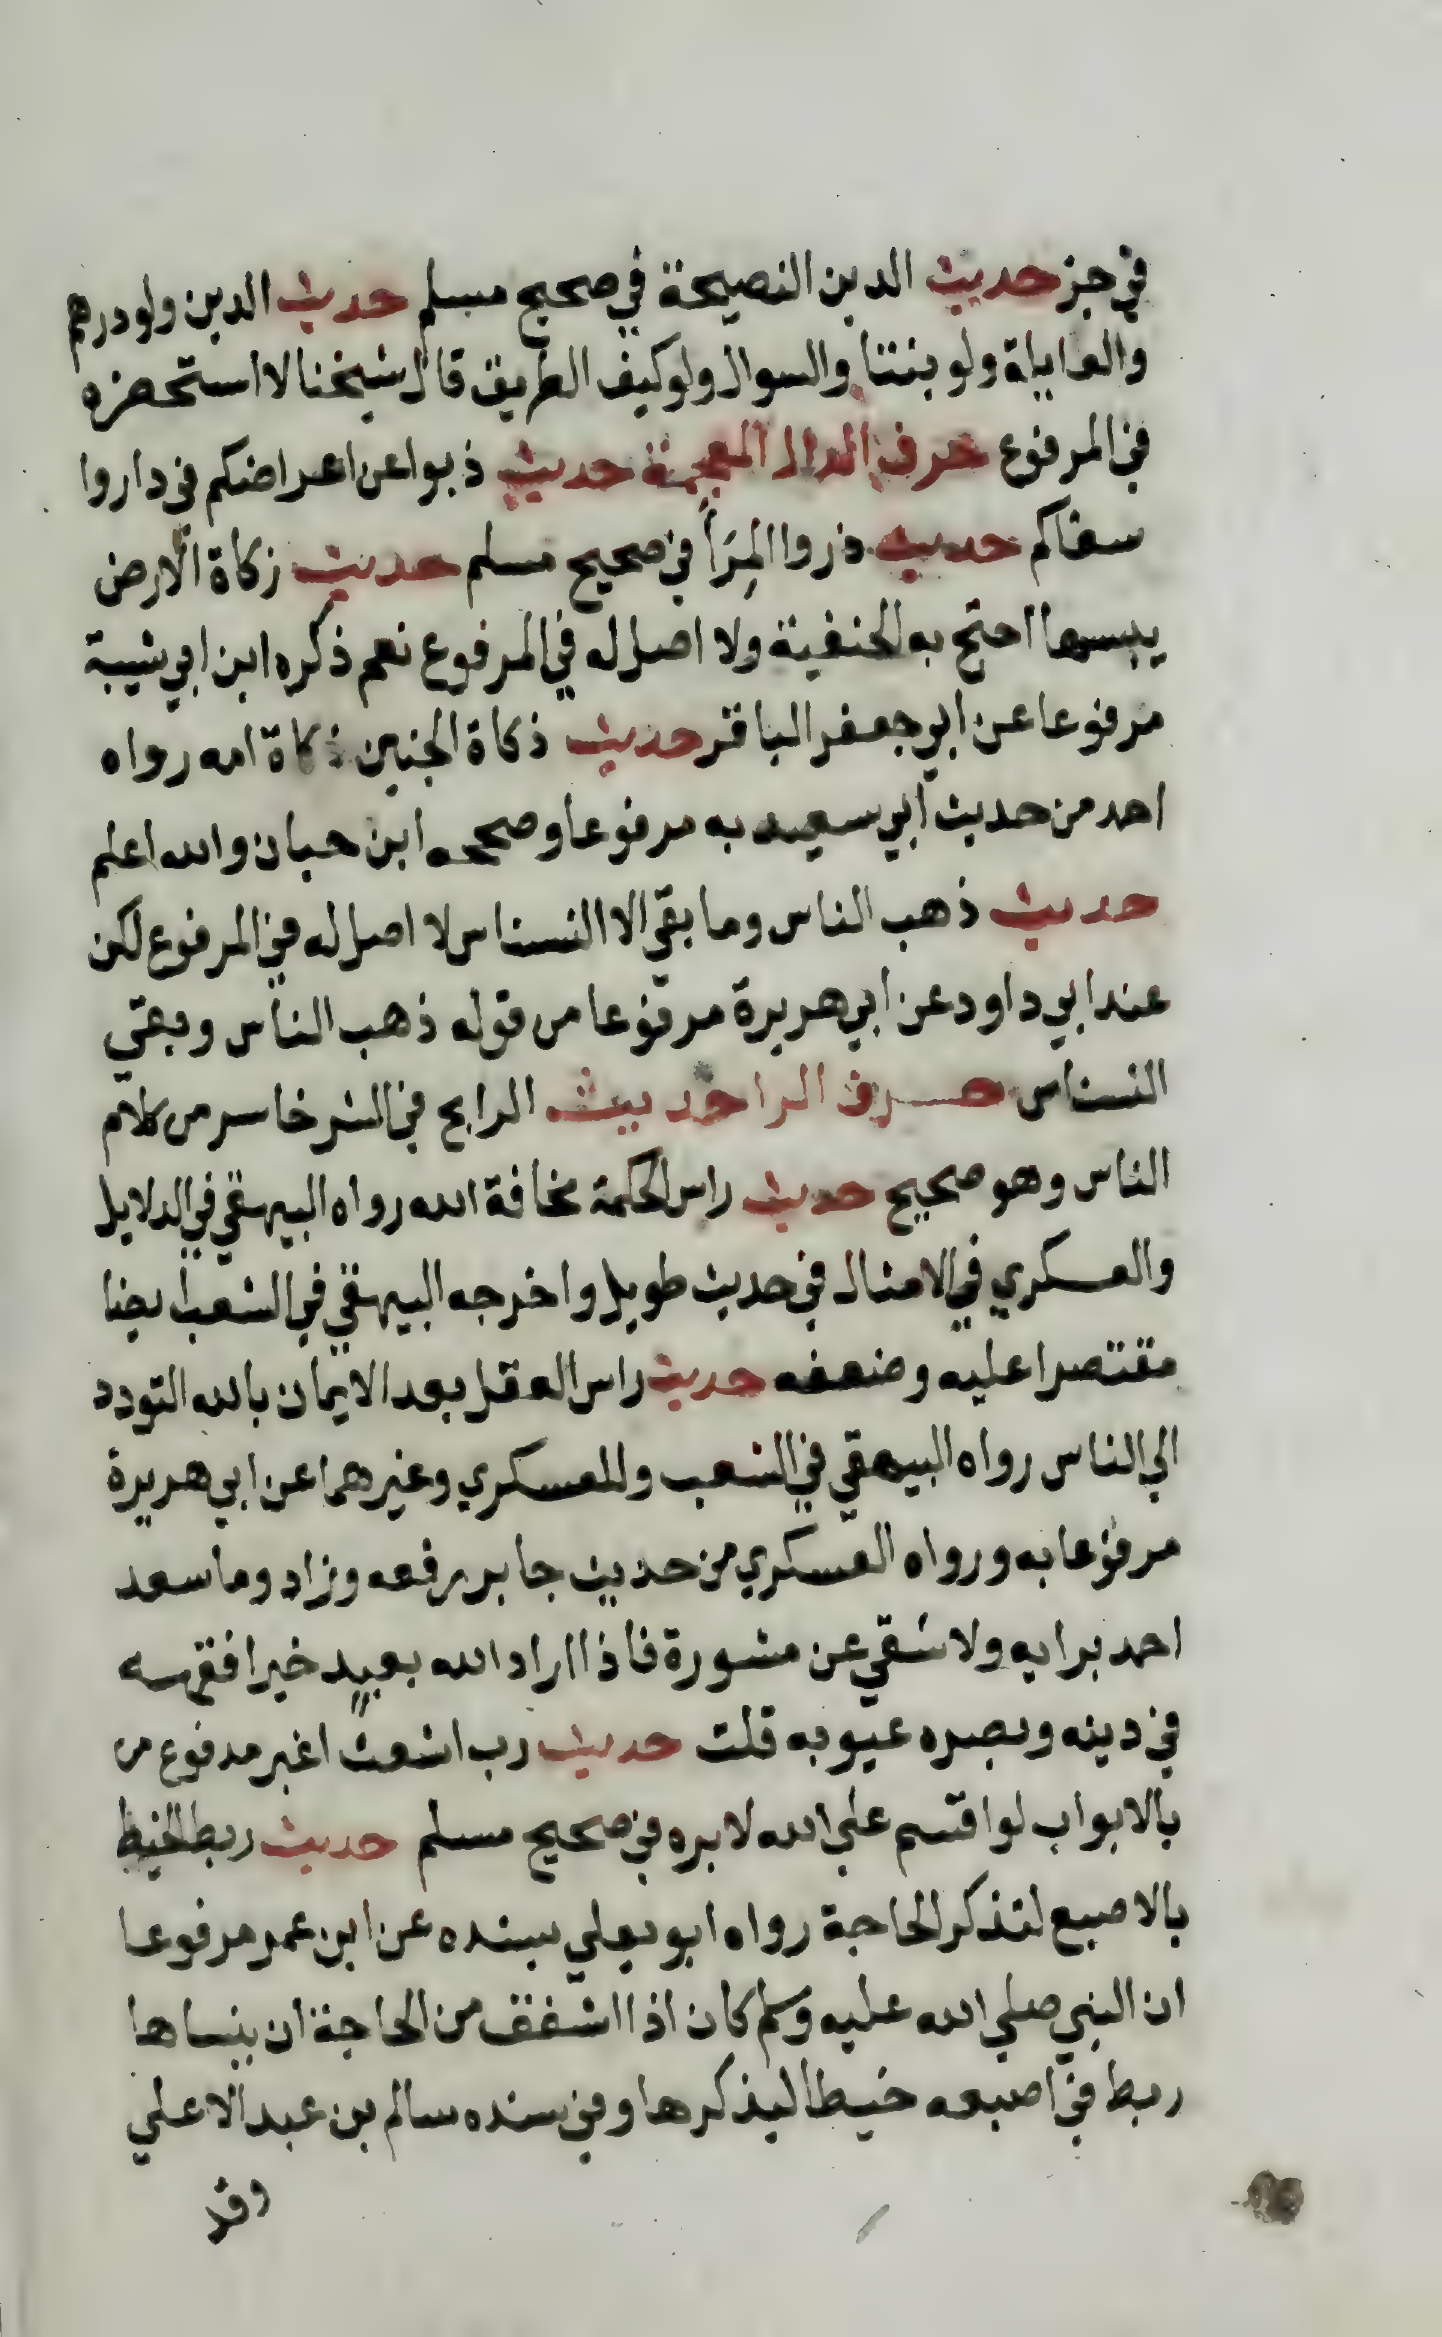 في جز حديث الدين النصيحة في صحيح مسلم حديث الدين ولو درهم
والعايلة ولو بنتا والسوال ولو كيف الطريق قال شيخنا لا استحضره
في المرفوع حرف الدال المعجمة حديث ذبوا عن اعراضكم في داروا
سفاكم حديث ذروا المرأ في صحيح مسلم حديث زكاة الارض
يبسها احتج به الحنفية ولا اصل له في المرفوع نعم ذكره ابن ابي شيبة
مرفوعا عن ابي جعفر الباقر حديث ذكاة الجنين ذكاة امه رواه
احمد من حديث ابي سعيد به مرفوعا وصححه ابن حبان والله اعلم
حديث ذهب الناس وما بقي الا النسناس لا اصل له في المرفوع لكن
عند ابي داود عن ابي هريرة مرفوعا من قوله ذهب الناس وبقي
النسناس حرف الرا حديث الرابح في الشر خاسر من كلام
الناس وهو صحيح حديث راس الحكمة مخافة الله رواه البيهقي في الدلايل
والعسكري في الامثال في حديث طويل واخرجه البيهقي في الشعب ايضا
مقتصرا عليه وضعفه حديث راس العقل بعد الايمان بالله التودد
الي الناس رواه البيهقي في الشعب وللعسكري وغيرهما عن ابي هريرة
مرفوعا به ورواه العسكري من حديث جابر يرفعه وزاد وما سعد
احد برايه ولا شقي عن مشورة فاذا اراد الله بعبد خيرا فقهه
في دينه وبصره عيوبه قلت حديث رب اشعث اغبر مدفوع من
بالابواب لو اقسم علي الله لابره في صحيح مسلم حديث ربط الخيط
بالاصبع لتذكر الحاجة رواه ابو يعلي بسنده عن ابن عمر مرفوعا
ان النبي صلي الله عليه وسلم كان اذا اشفق من الحاجة ان ينساها
ربط في اصبعه خيطا ليذكرها وفي سنده سالم بن عبد الاعلي
وقد